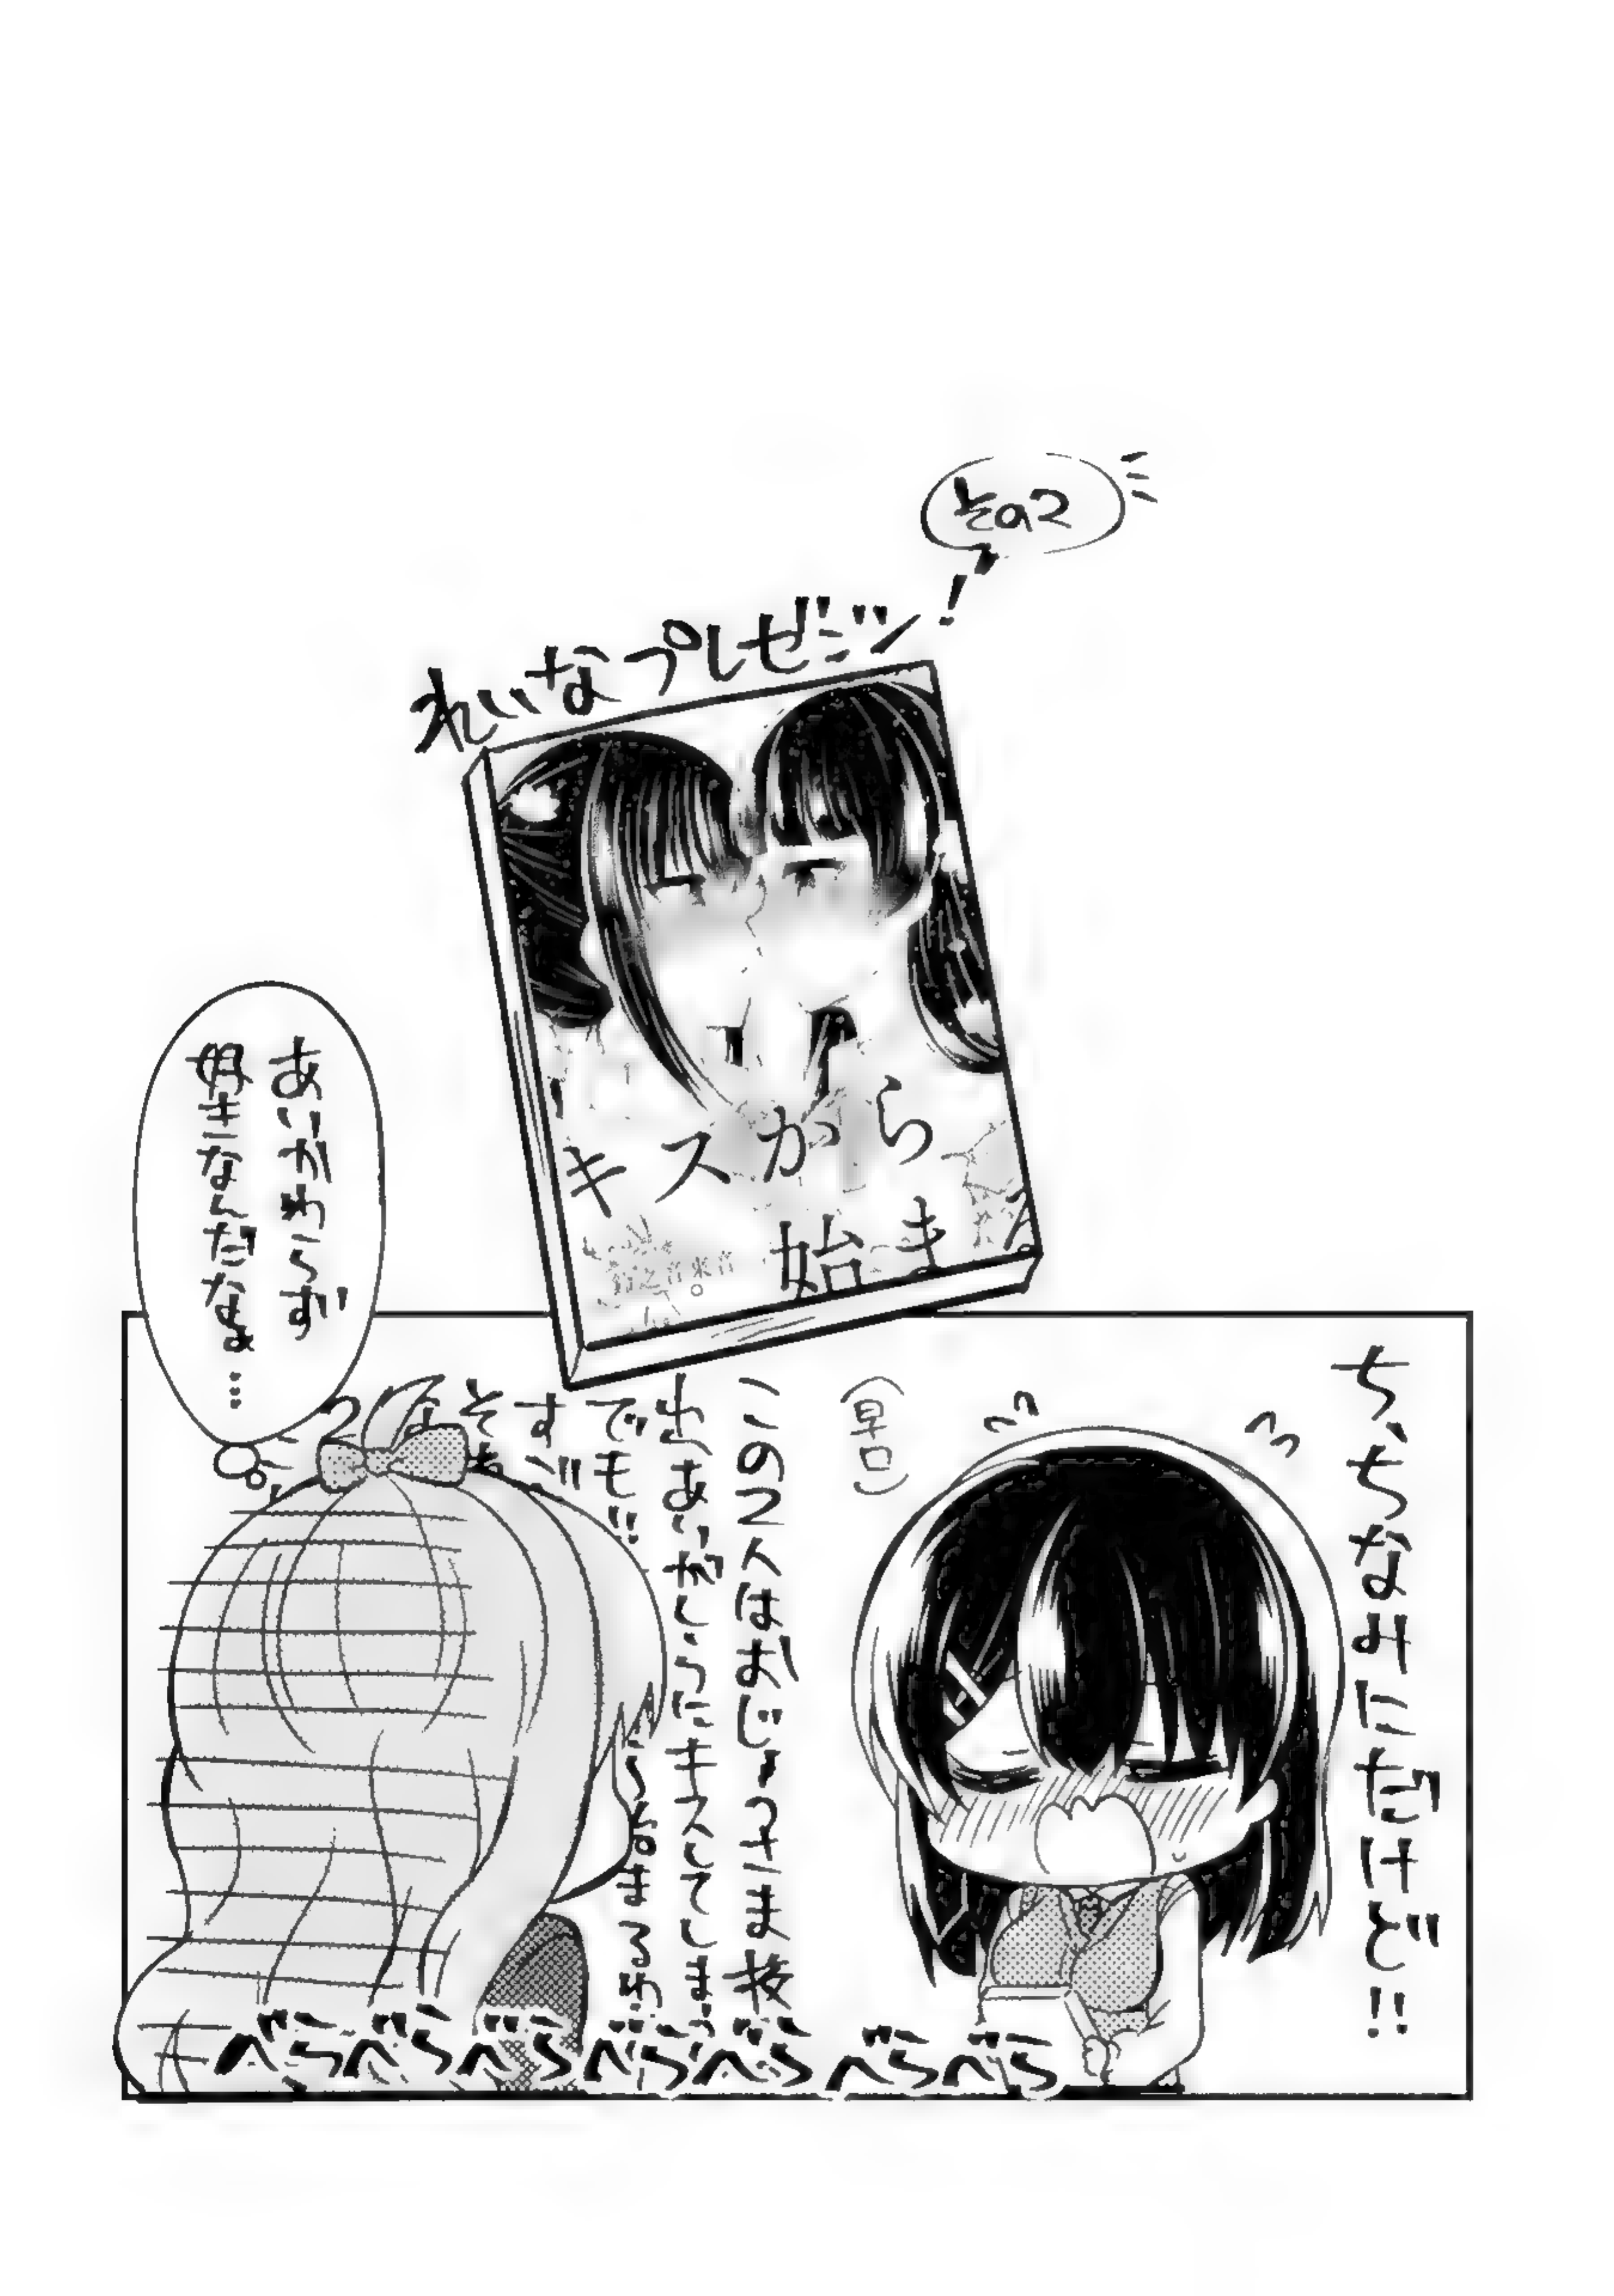 その2
れいなプレゼンツ!
キスから
始まる
ち、ちなみにだけど!!
(早口)
この2人はおじょうさま校
出あいがしらにキスしてしまっ
でも!!
あいかわらず
好きなんだなぁ…
べらべらべらべらべらべらべら